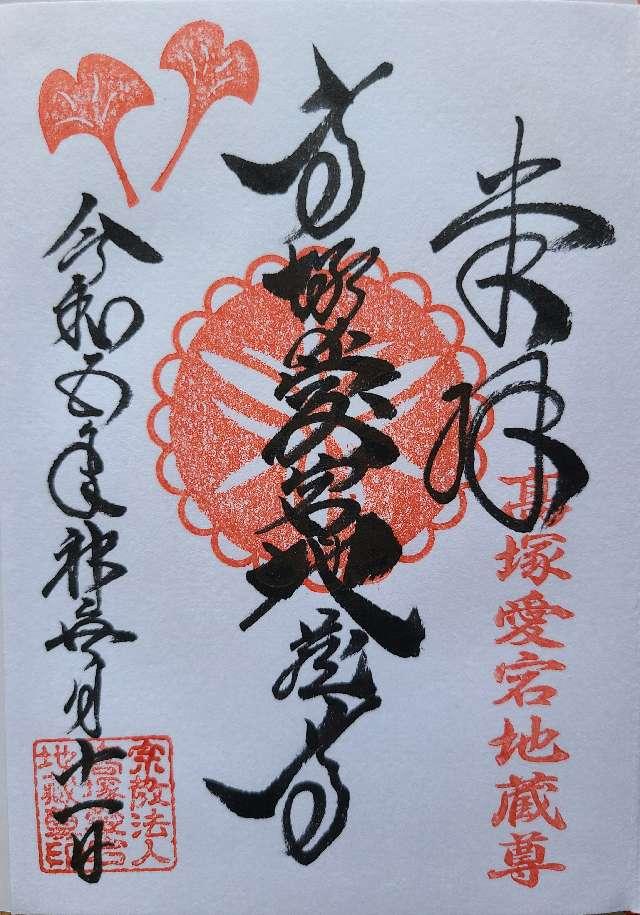 奉拝
髙塚愛宕地蔵尊
高塚愛宕地蔵尊
令和五年神無月十一日
宗教法人
高塚愛宕
地蔵尊印